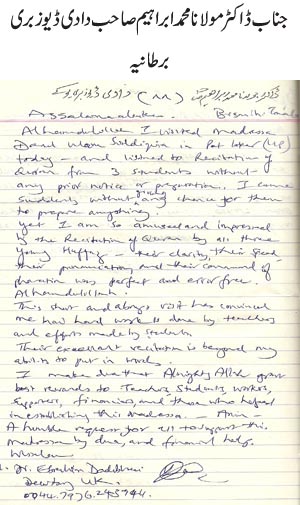 جناب ڈاکٹر مولانا محمد ابراہیم صاحب دادی ڈیوزبری
برطانیہ
(۸۸)
Assalamualaikum
Alhamdulillah I visited Madrasa
Darul Uloom Siddiqia in (UP)
today - and listened to Recitation of
Quran from 3 students without
any prior notice or preparation. I came
suddenly without chance for them
to prepare anything.
Yet I am so amused and impressed
by the Recitation of Quran by all three
young - their clarity, their speed
their pronunciation and their command of
was perfect and error free.
Alhamdulillah.
This short and abrupt visit has convinced
me how hard work is done by teachers
and efforts made by students
Their excellent recitation is beyond my
ability to put in words
I make dua that Almighty Allah grant
best rewards to Teachers, Students, workers,
supporers, financiers, and those who helped
in establishing this Madrasa. - Amin -
A humble request for all to support this
madrasa by dua, and financial help.
Wsalam
Dr. Ebrahim Dadibhai
Dewsbury UK.
0044.7976.245944.